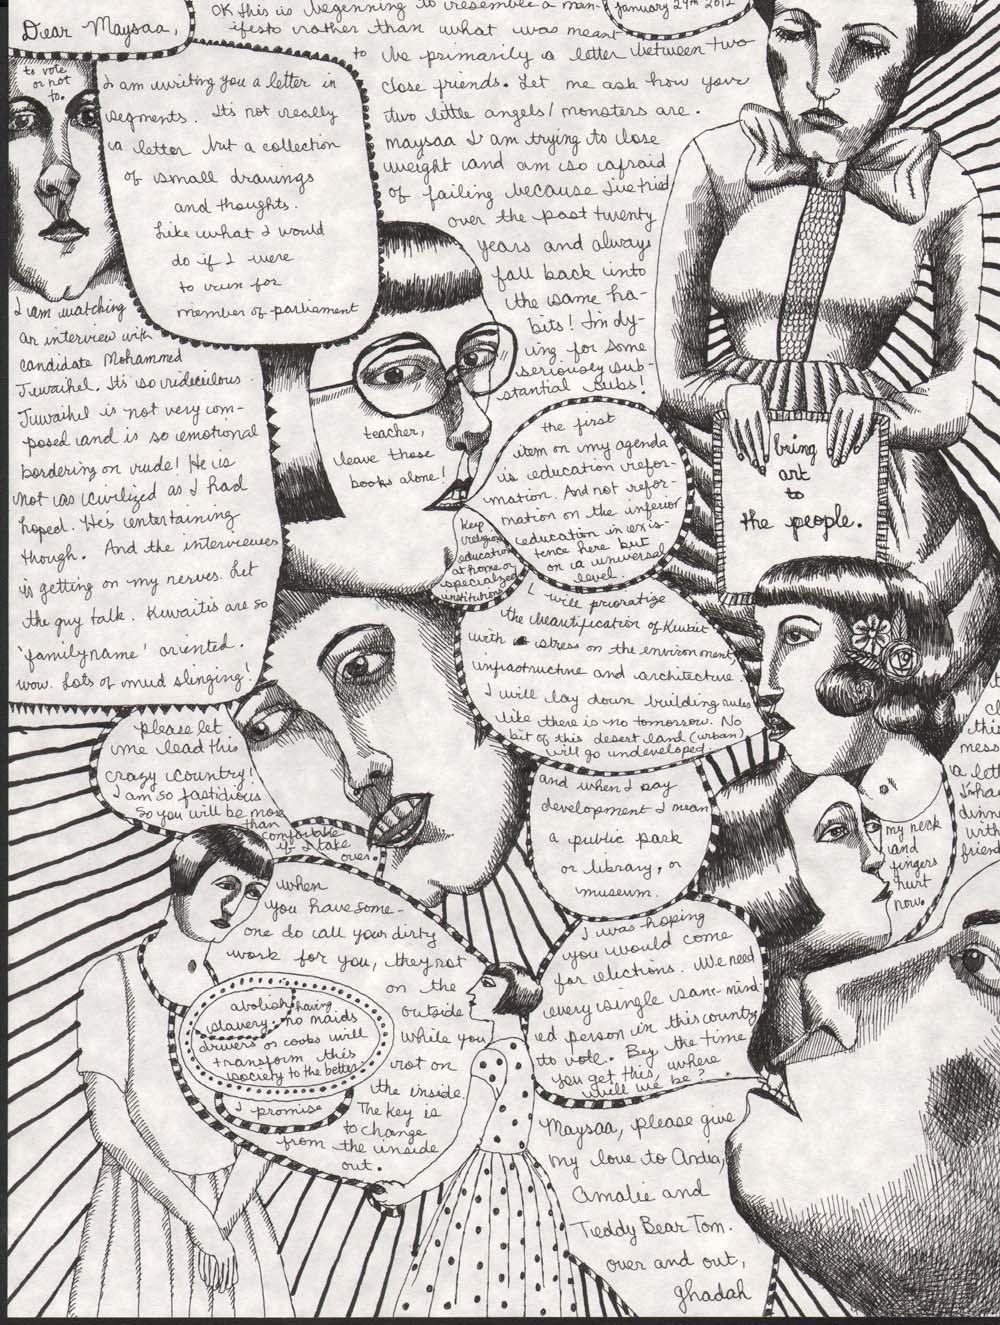 Dear Maysaa,
January 29th 2012
to vote
or not
to.
I am writing you a letter in
segments. Its not really
a letter but a collection
of small drawings
and thoughts.
Like what I would
do if I were
to run for
member of parliament
I am watching
an interview with
candidate Mohammed
Juwaihel. Its so rediculous.
Juwaihel is not very com-
posed and is so emotional
bordering on rude! He is
not as civilized as I had
hoped. He's entertaining
though. And the interviewer
is getting on my nerves. Let
the guy talk. Kuwaitis are so
'family name' oriented.
wow. Lots of mud slinging!
OK this is beginning to resemble a man-
ifesto rather than what was meant
to be primarily a letter between two
close friends. Let me ask how your
two little angels/monsters are.
maysaa I am trying to lose
weight and am so afraid
of failing because I've tried
over the past twenty
years and always
fall back into
the same ha-
bits! Im dy-
ing for some
seriously sub-
stantial subs!
teacher,
leave those
books alone!
the first
item on my agenda
is education refor-
mation. And not refor-
mation on the inferior
education in exis-
tence here but
on a universal
level
keep
religious
education
at home or
specialized
institutions
bring
art
to
the people.
I will prioratize
the beautification of Kuwait
with stress on the environment
infrastructure and architecture.
I will lay down building rules
like there is no tomorrow. No
bit of this desert land (urban)
will go undeveloped
and when I say
development I mean
a public park
or library, or
museum.
please let
me lead this
crazy country!
I am so fastidious
so you will be more
than
comfortable
if I take
over.
when
you have some-
one do all your dirty
work for you, they rot
on the
outside
while you
rot on
the inside.
The key is
to change
from the inside
out.
abolish having
slavery. no maids
drivers or cooks will
transform this
society to the better.
I promise
I was hoping
you would come
for elections. We need
every single sane-mind-
ed person in this country
to vote. Bey the time
you get this, where
will we be?
my neck
and
fingers
hurt
now.
this
mess
a lett
dinn
with
friend
Maysaa, please give
my love to Andia,
Amalie and
Teddy Bear Tom.
over and out,
Ghadah